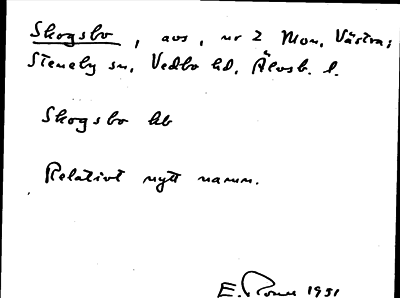 Skogsbo, avs, nr 2 Mon, Västra;
Steneby sn, Vedbo hd, Älvsb. l.
Skogsbo hb
Relativt nytt namn.
E. 1951